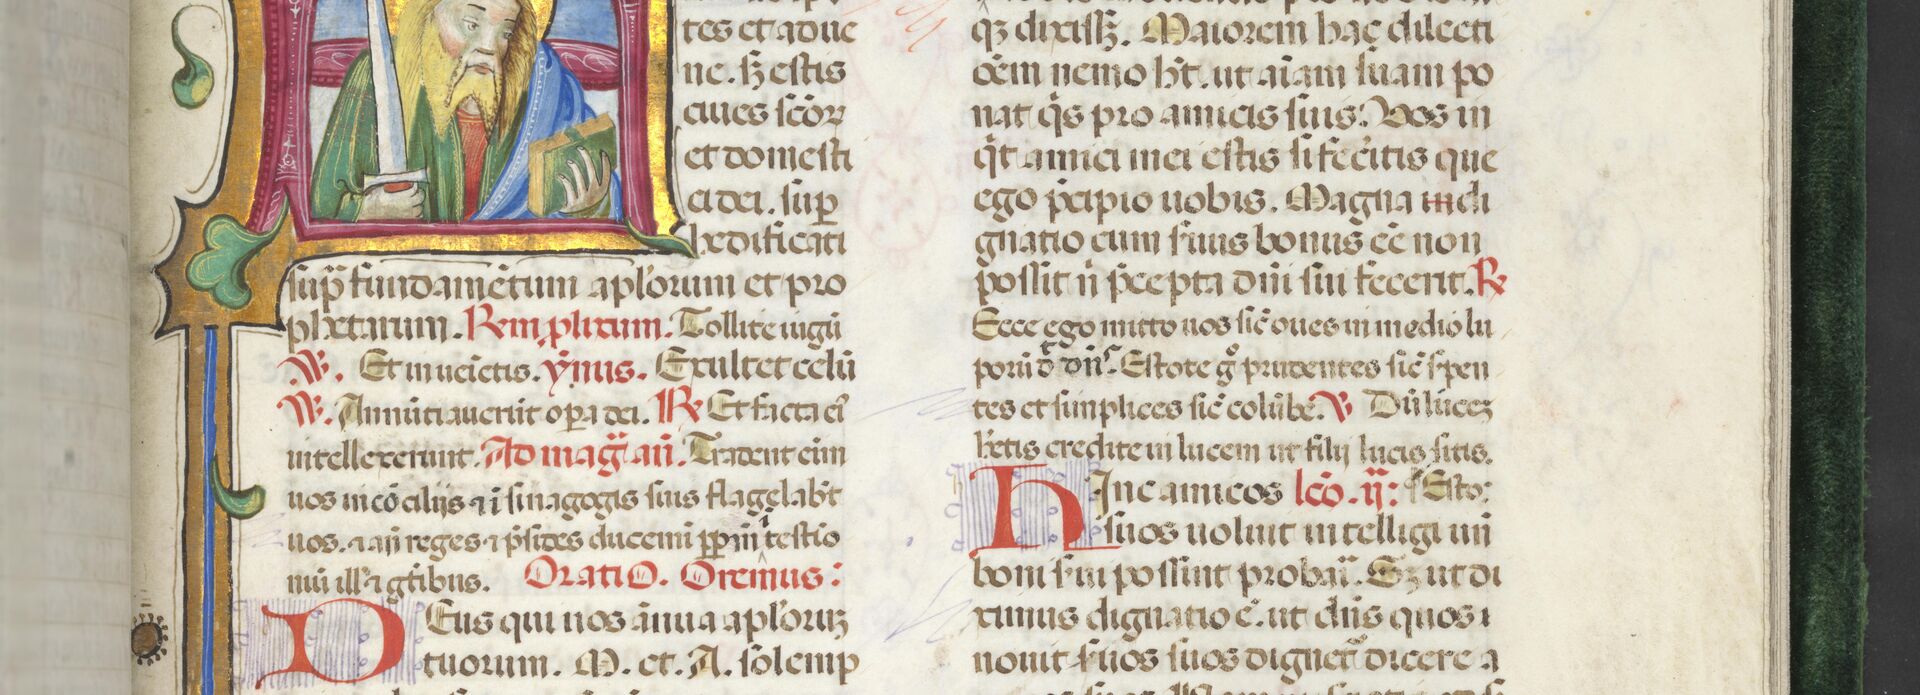 tes et adue
ne. sꝫ estis
ciues scōꝝ
et domesti
ci dei. sup̄
hedificati
sup̄ fundamētum apl'orum et pro
phetarum. Remplixum. Tollite iugū
V. Et inuenietis. ymus. Exultet celū
V. Annūtiauerūt opa dei. R Et facta eī
intellexerunt. Ad mag̃ añ. Tradent eūm
uos in cōcilijs ⁊ ī sinagogis suis flagelabt̄
uos. ⁊ añ reges ⁊ p̄sides ducemī ꝓp̄ m̄ ī testīo
niū ill' ⁊ gētibus. Oratio. Oremus:
Deus qui nos ānua apl'oruꝫ
tuorum. M. et. A. solemp
qꝫ dixissꝫ. Maiorem hac dilecti
ōem nemo h̄t. ut aīam suam po
nat q̄s pro amicis suis. Vos m̄
q̄t amici mei estis si fec̄itis que
ego p̄cipio uobis. Magna indi
gnatio cum suus bonus eē non
possit n̄ p̄cepta dn̄i sui fecerit. R
Ecce ego mitto uos sic̄ oues in medio lu
porū d' dn̄s. Estote g̊ prudentes sic̄ s'pen
tes et simplices sic̄ colūbe. V Dū lucez
h'etis credite in lucem ut filij lucis sitis.
Hinc amicos lcō. ij: Esto
suos uoluit intelligi un̄
boni sui possint probari. Sꝫ ut di
ximus dignatio ē. ut dn̄s quos
nouit suos suos dignet̄ dicere a